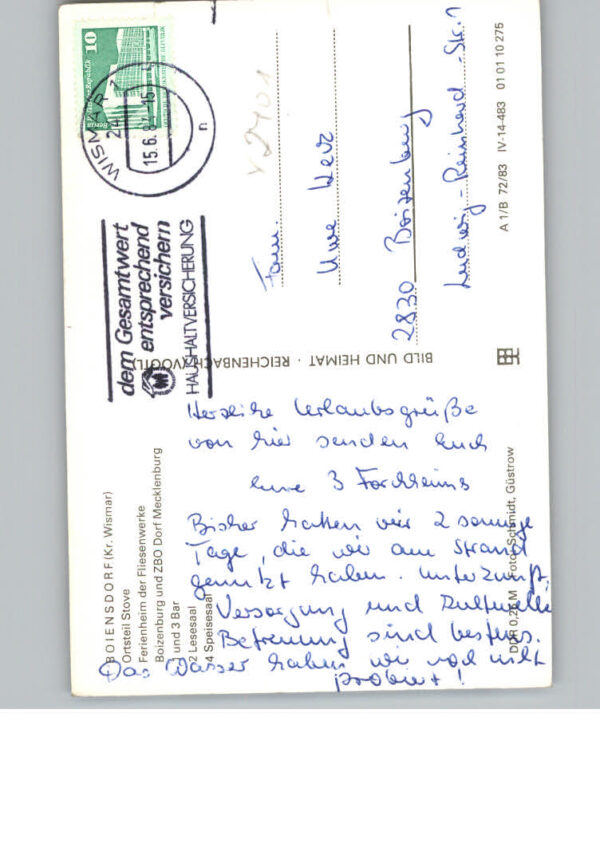 BOIENSDORF (Kr. Wismar)
Ortsteil Stove
Ferienheim der Fliesenwerke
Boizenburg und ZBO Dorf Mecklenburg
1 und 3 Bar
2 Lesesaal
4 Speisesaal
Herzliche Urlaubsgrüße
von hier senden Euch
Eure 3 Forchheims
Bisher hatten wir 2 sonnige
Tage, die wir am Strand
genutzt haben. Unterkunft,
Versorgung und kulturelle
Betreuung sind bestens.
Das Wasser haben wir noch nicht
probiert!
dem Gesamtwert
entsprechend
versichern
HAUSHALTVERSICHERUNG
BILD UND HEIMAT · REICHENBACH (VOGTL)
DDR 0,25 M Foto: Schmidt, Güstrow
WISMAR 1
24
15.6.8 -15
n
10
Berlin
Fam.
Uwe
2830 Boizenburg
Ludwig-Reinhard-Str. 1
A 1/B 72/83 IV-14-483 01 01 10 275